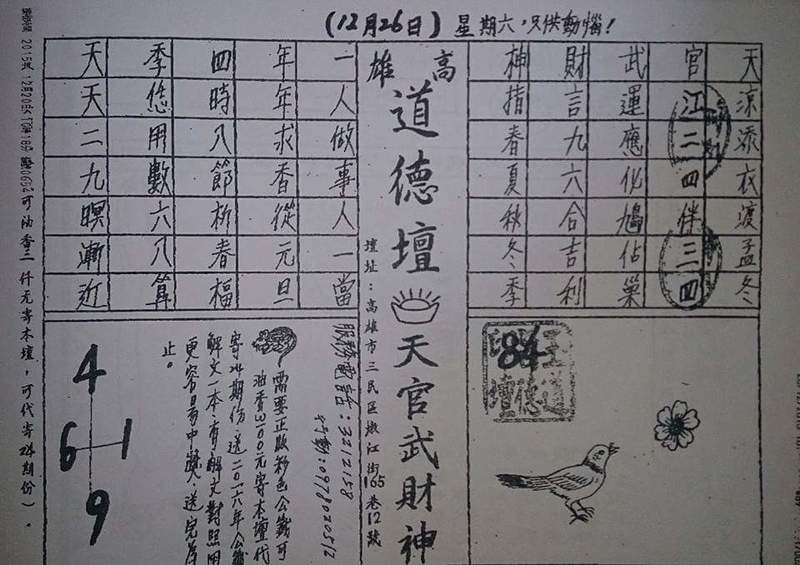 (12月26日) 星期六，只供動惱!
天涼添衣渡孟冬
官江二四伴三四
武運應化鳩佔巢
財言九六合吉利
神指春夏秋冬季
84
高雄
道德壇
天官武財神
壇址：高雄市三民區嫩江街165巷12號
一人做事人一當
年年求香從元旦
四時八節祈春福
季您用數六八算
天天二九暝漸近
服務電話：3212158
行動：0978020512
需要正版彩色公籤可
寄24期份，送二0一六年公籤
解文一本，有解文對照用
更容易中獎、送完為
止。
4
6 1
9
可油香三仟元寄本壇，可代寄24期份)。